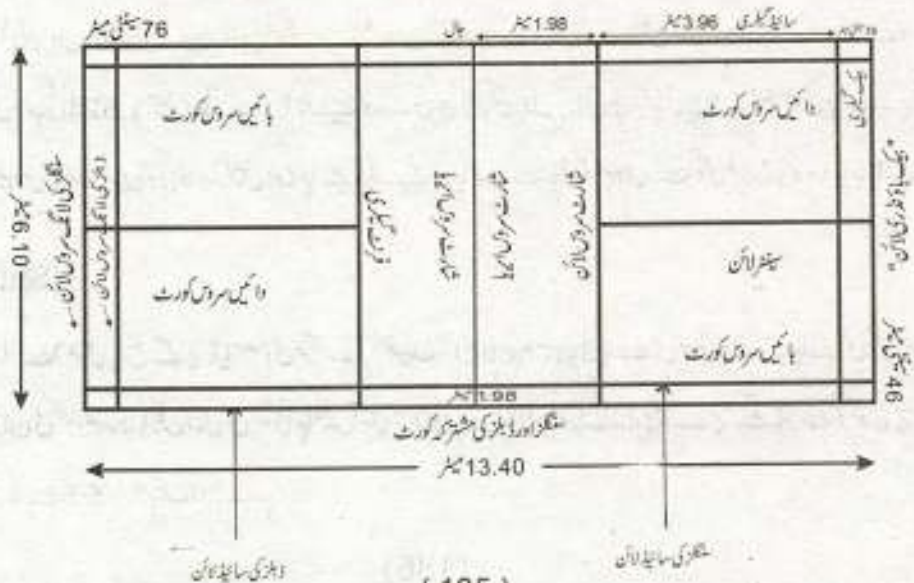 76 سینٹی میٹر
جال
1.98 میٹر
3.96 میٹر
سائیڈ گیلری
بائیں سروس کورٹ
دائیں سروس کورٹ
سنگلز کی لانگ سروس لائن
ڈبلز کی لانگ سروس لائن
فرنٹ گیلری
شارٹ سروس ایریا
شارٹ سروس لائن
6.10 میٹر
دائیں سروس کورٹ
سینٹر لائن
بائیں سروس کورٹ
46 سینٹی میٹر
1.98 میٹر
سنگلز اور ڈبلز کی مشترکہ کورٹ
13.40 میٹر
ڈبلز کی سائیڈ لائن
سنگلز کی سائیڈ لائن